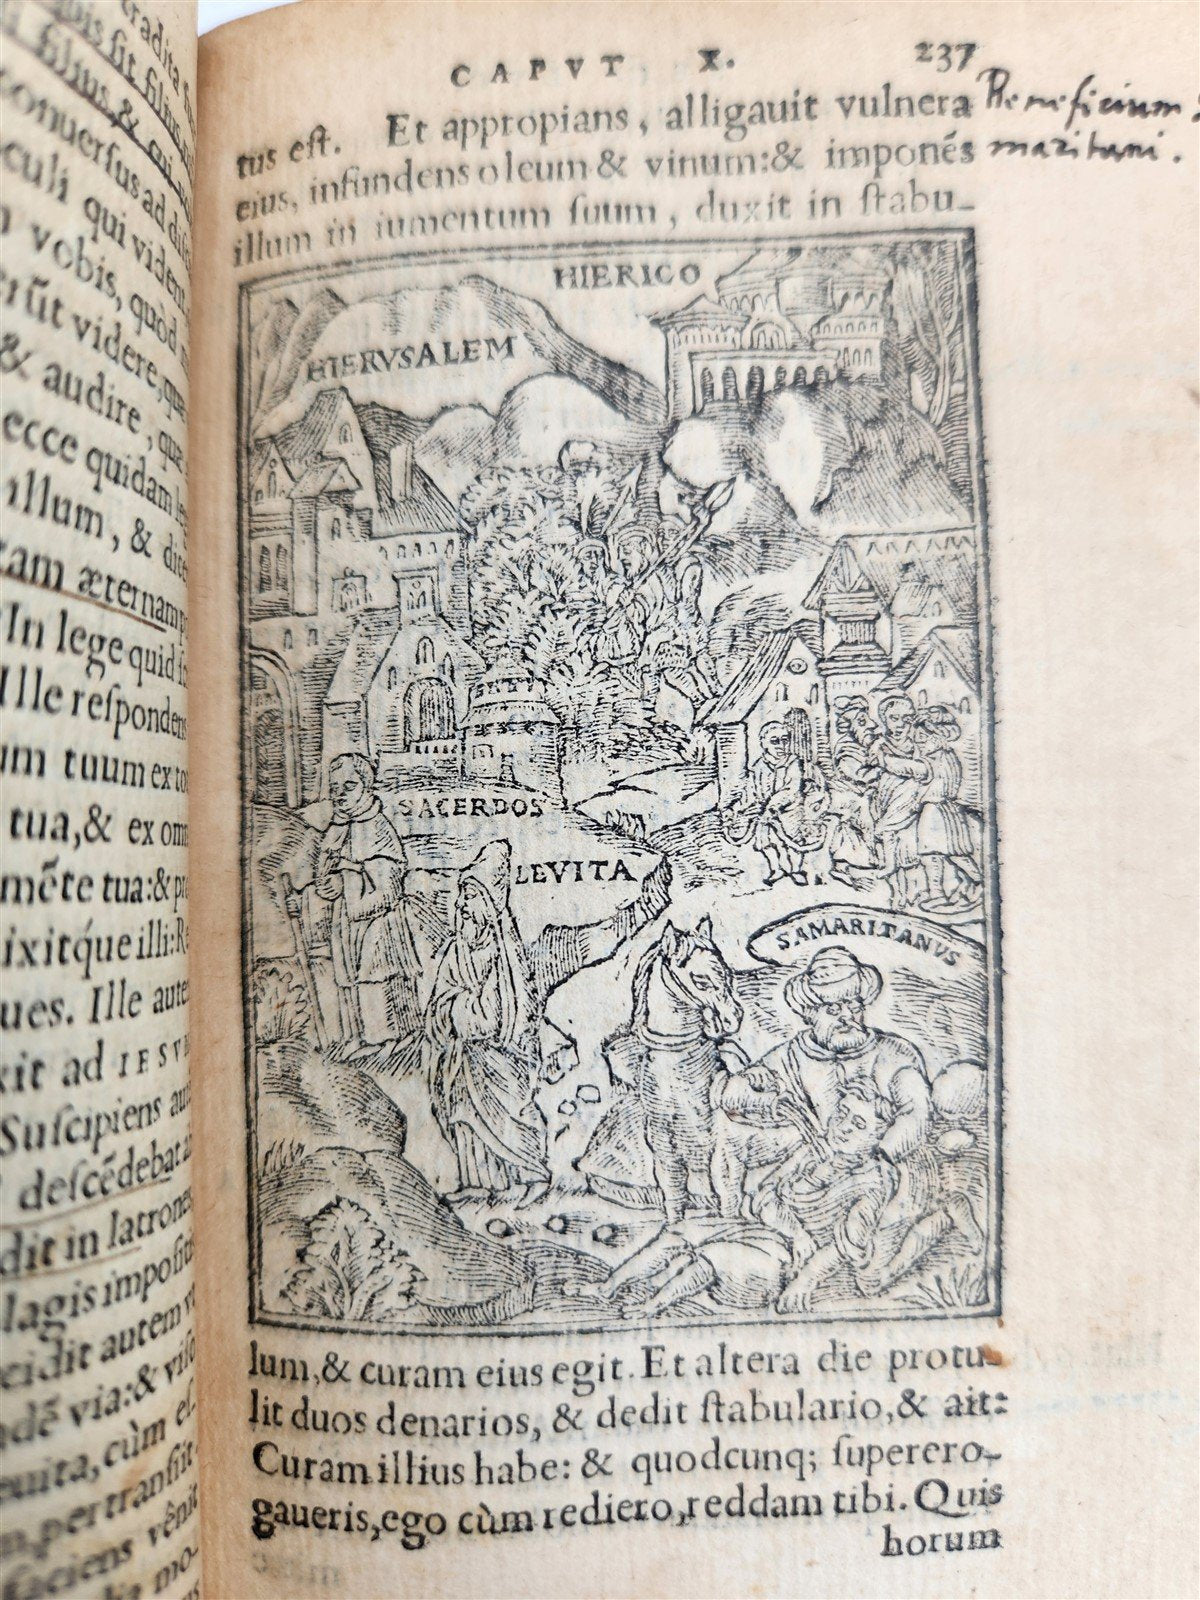 tradita s
bis sit filius, nis
filius, & cui v
conuersus ad dis
culi qui vident
vobis, quod
erūt videre, quæ
& audire, quæ
ecce quidam leg
illum, & dice
tam æternam p
In lege quid s
Ille respondens
um tuum ex to
tua, & ex omn
mēte tua: & pr
ixitq́ue illi: Re
ues. Ille aute
xit ad IESVM
Suscipiens aut
descēdebat a
dit in latrones
lagis imposit
cidit autem v
adē via: & viso
euita, cùm es
pertransiit
faciens vēnit
mo-
CAPVT X. 237
tus est. Et appropians, alligauit vulnera
eius, infundens oleum & vinum: & imponēs
illum in iumentum suum, duxit in stabu-
Beneficium S
maritani.
HIERICO
HIERVSALEM
SACERDOS
LEVITA
SAMARITANUS
lum, & curam eius egit. Et altera die protu-
lit duos denarios, & dedit stabulario, & ait:
Curam illius habe: & quodcunq; superero-
gaueris, ego cùm rediero, reddam tibi. Quis
horum